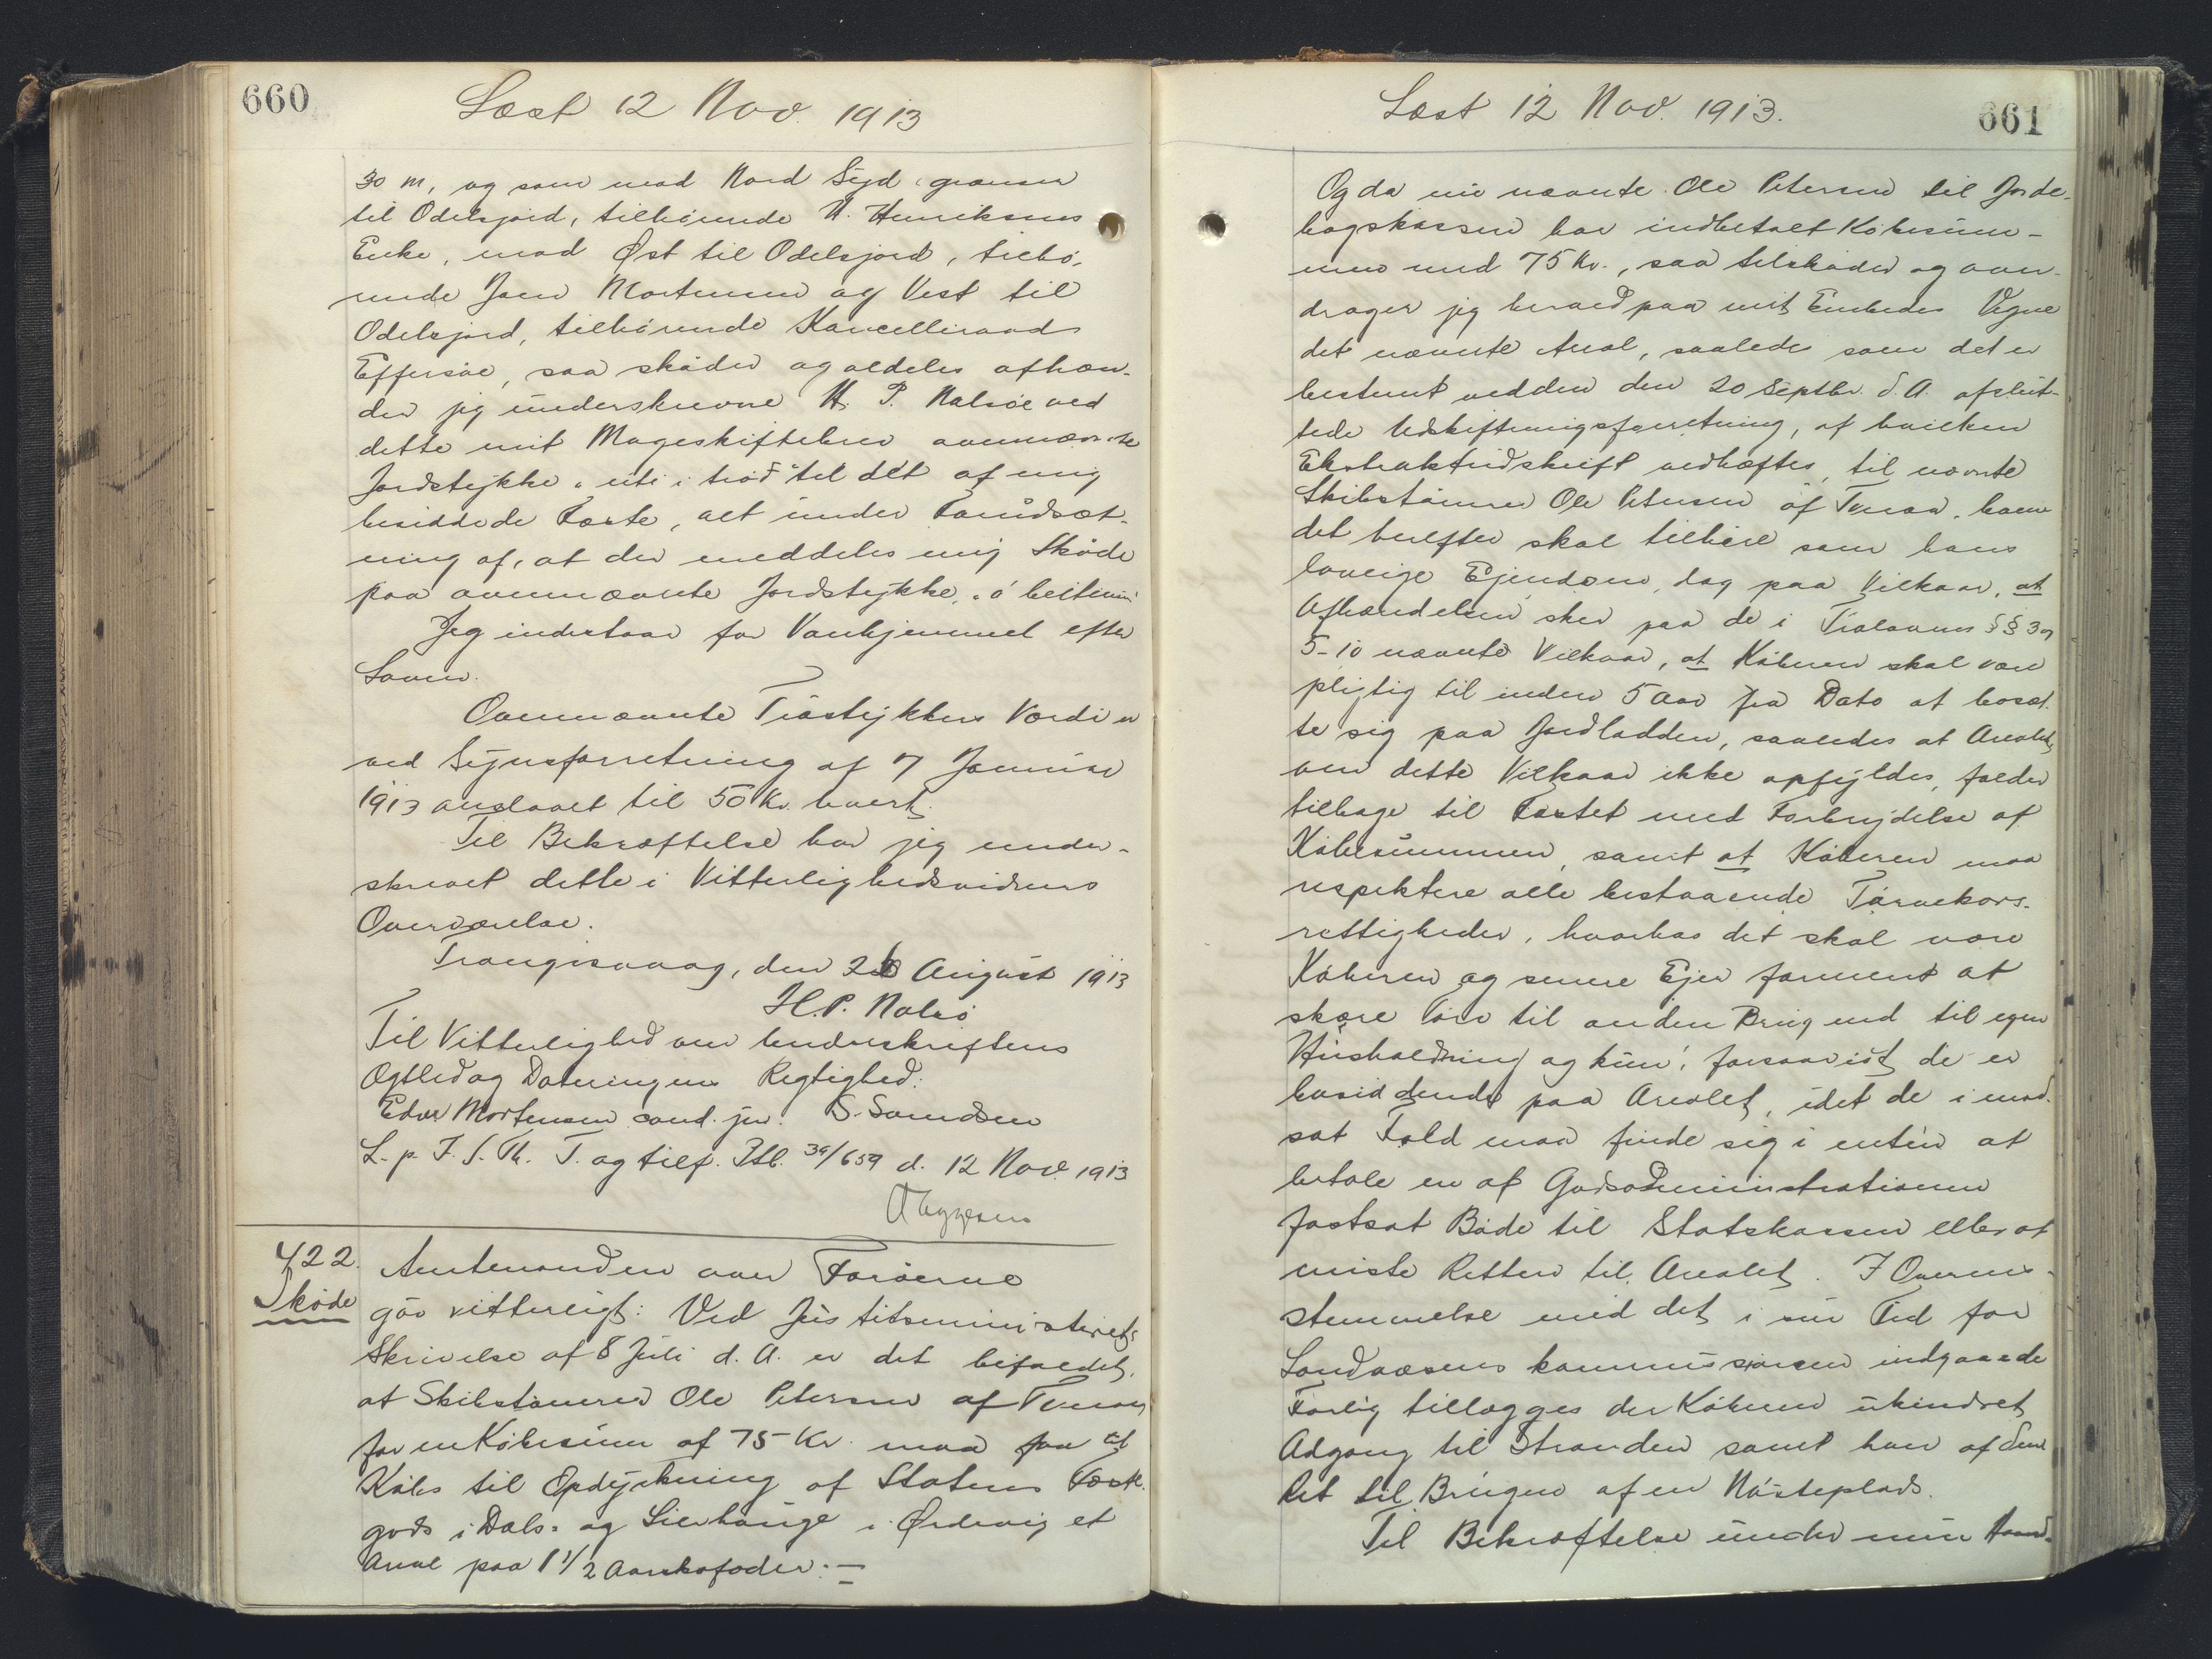 660
Læst 12 Nov. 1913
30 m, og som mod Nord Syd grænser
til Odelsjord, tilhörende H. Henriksens
Enke, mod Øst til Odelsjord, tilhö-
rende Joen Mortensen og Vest til
Odelsjord, tilhörende Kancelliraad
Effersöe, saa sköder og aldeles afhæn-
der jeg underskrevne H. P. Nalsöe ved
dette mit Mageskiftebrev ovennævnte
Jordstykke „uti i tröd" til det af mig
besiddede Fæste, alt under Forudsæt-
ning af, at der meddeles mig Sköde
paa ovennævnte Jordstykke, „á
Jeg indestaar for Vanhjemmel efter
Loven.
Ovennævnte Tröstykkers Værdi er
ved Synsforretning af 7 Januar
1913 anslaaet til 50 Kr. hvert.
Til Bekræftelse har jeg under-
skrevet dette i Vitterlighedsvidners
Overværelse.
Trangisvaag, den 26 August 1913
H. P. Nalsö
Til Vitterlighed om Underskriftens
Ægthed og Dateringens Rigtighed:
Edw. Mortensen cand. jur. S. Samdsen
L. p. F. S. Th. T. og tilf. Ptb. 39/659 d. 12 Nov. 1913
422. Amtmanden over Færöerne
Sköde gör vitterligt: Ved Justitsministeriets
Skrivelse af 8 Juli d. A. er det bifaldet,
at Skibstömrer Ole Petersen af Tveraa
for en Köbesum af 75 Kr. maa faa til
Köbs til Opdyrkning af Statens Fæste-
gods i Dals- og Lierhauge i Ørdevig et
Areal paa 1 1/2 Aarskofoder. —
Læst 12 Nov. 1913.
661
Og da nu nævnte Ole Petersen til Jorde-
bogskassen har indbetalt Köbesum-
men med 75 Kr., saa tilsköder og over-
drager jeg herved paa mit Embedes Vegne
det nævnte Areal, saaledes som det er
bestemt ved den den 20 Septbr. d. A. afslut-
tede Udskiftningsforretning, af hvilken
Ekstraktudskrift vedhæftes, til nævnte
Skibstömrer Ole Petersen af Tveraa, ham
det herefter skal tilhöre som hans
lovlige Ejendom, dog paa Vilkaar, at
Afhændelsen sker paa de i Trölovens §§ 3 og
5-10 nævnte Vilkaar, at Köberen skal være
pligtig til inden 5 Aar fra Dato at bosæt-
te sig paa Jordlodden, saaledes at Arealet,
om dette Vilkaar ikke opfyldes, falder
tilbage til Fæstet med Forbrydelse af
Köbesummen, samt at Köberen maa
respektere alle bestaaende Törvekors-
rettigheder, hvorhos det skal være
Köberen og senere Ejer forment at
skære Törv til anden Brug end til egen
Husholdning og kun, forsaavidt de er
bosiddende paa Arealet, idet de i mod-
sat Fald maa finde sig i enten at
betale en af Godsadministrationen
fastsat Böde til Statskassen eller at
miste Retten til Arealet. I Overens-
stemmelse med det i sin Tid for
Landvæsenskommissionen indgaaede
Forlig tillægges der Köberen uhindret
Adgang til Stranden samt han af den
Ret til Brugen af en Nösteplads.
Til Bekræftelse under min Haand-